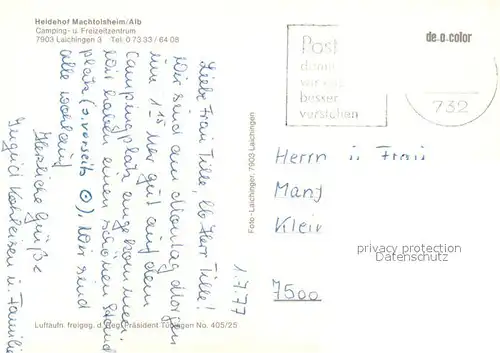 Heidehof Machtolsheim/Alb
Camping- u. Freizeitzentrum
7903 Laichingen 3 Tel. 0 73 33 / 64 08
1.7.77
Liebe Frau Tille, lb Herr Tille!
Wir sind am Montag morgen
um 1 15 Uhr gut auf dem
Campingplatz angekommen.
Wir haben einen schönen Stand
platz (s. vorseits ⊙). Wir sind
alle wohlauf
Herzliche Grüße
u. Familie
Luftaufn. freigeg. d. Reg. Präsident Tübingen No. 405/25
Foto-Laichinger, 7903 Laichingen
Post
damit
wir
besser
verstehen
de-o-color
732
Herrn u Frau
Manf
Klein
7500
privacy protection
Datenschutz